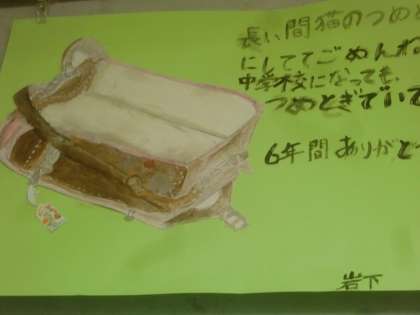 長い間猫のつめと
にしててごめんね
中学校になっても、
つめとぎでいて
6年間ありがと
岩下